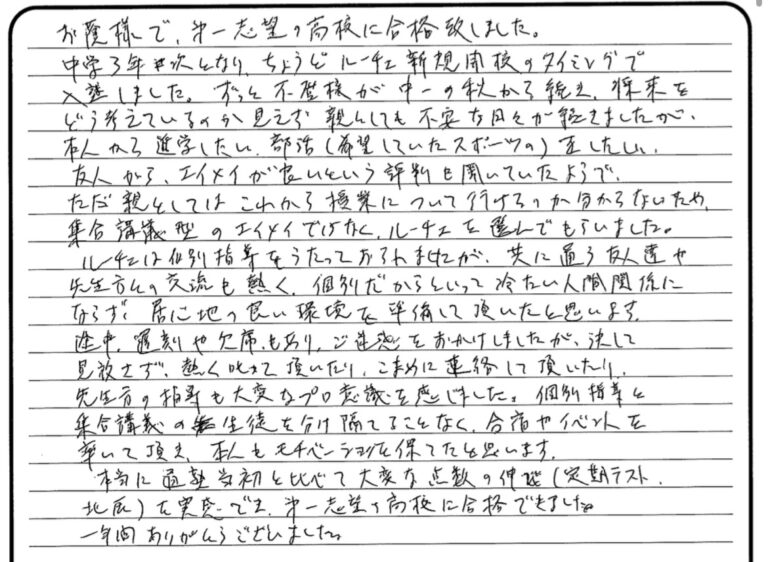 お陰様で、第一志望の高校に合格致しました。
中学3年次となり、ちょうどルーチェ新規開校のタイミングで
入塾しました。ずっと不登校が中一の秋から続き、将来を
どう考えているのか見えず親としても不安な日々が続きましたが、
本人から進学したい、部活(希望していたスポーツの)をしたい、
友人から、エイメイが良いという評判も聞いていたようで、
ただ親としてはこれから授業について行けるのか分からないため、
集合講義型のエイメイではなく、ルーチェを選んでもらいました。
ルーチェは個別指導をうたっておられましたが、共に通う友人達や
先生方との交流も熱く、個別だからといって冷たい人間関係に
ならず、居心地の良い環境を準備して頂いたと思います。
途中、遅刻や欠席もあり、ご迷惑をおかけしましたが、決して
見放さず、熱く叱って頂いたり、こまめに連絡して頂いたり、
先生方の指導も大変なプロ意識を感じました。個別指導と
集合講義の生徒を分け隔てることなく、合宿やイベントを
開いて頂き、本人もモチベーションを保てたと思います。
本当に通塾当初と比べて大変な点数の伸び(定期テスト、
北辰)を実感でき、第一志望の高校に合格できました。
一年間ありがとうございました。